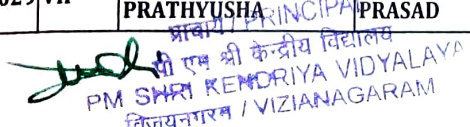 PRATHYUSHA PRASAD
प्राचार्य / PRINCIPAL
पी एम श्री केन्द्रीय विद्यालय
PM SHRI KENDRIYA VIDYALAYA
विजयनगरम / VIZIANAGARAM